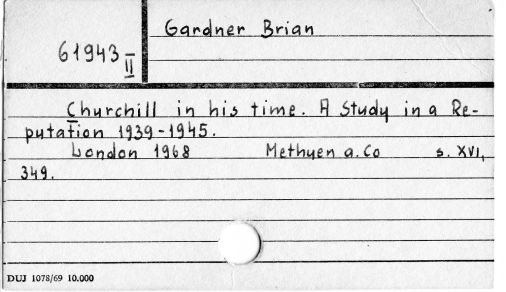 Gardner Brian
61943 II
Churchill in his time. A Study in a Re-
putation 1939-1945.
London 1968 Methuen a. Co s. XVI,
349.
DUJ 1078/69 10.000